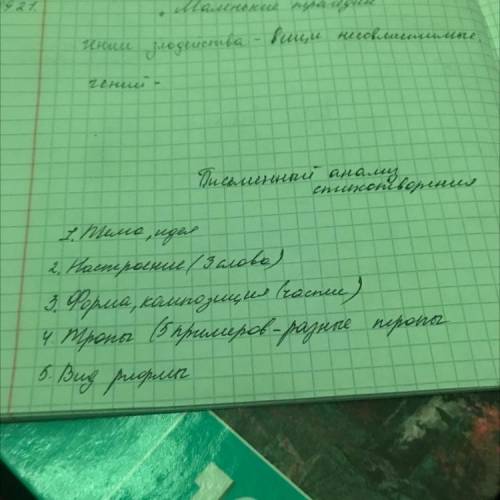 921.
"Маленькие трагедии
гений злодейства - вещи несовместимые
гений -
Письменный анализ
стихотворения
1. Тема, идея
2. Настроение (3 слова)
3. Форма, композиция (части)
4. Тропы (5 примеров - разные тропы
5. Вид рифмы